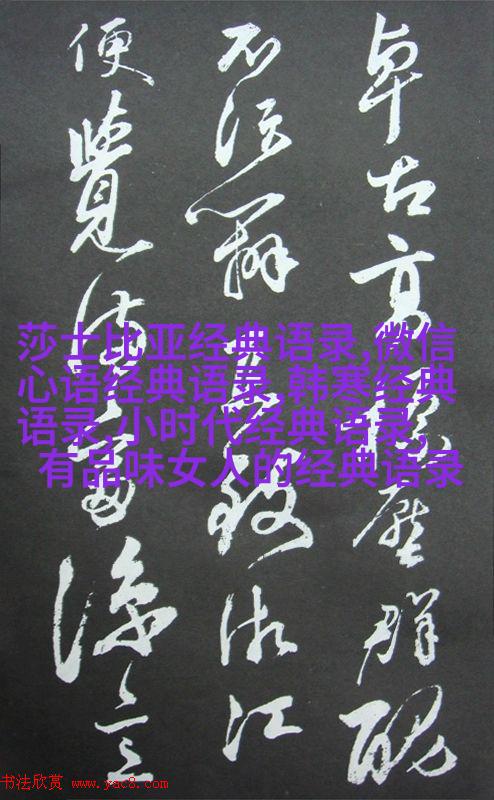 卓古高壓群醜
不江
便覺
莎士比亚经典语录,微信
心语经典语录,韩寒经典
语录,小时代经典语录,
有品味女人的经典语录
书法欣赏 www.yac8.com